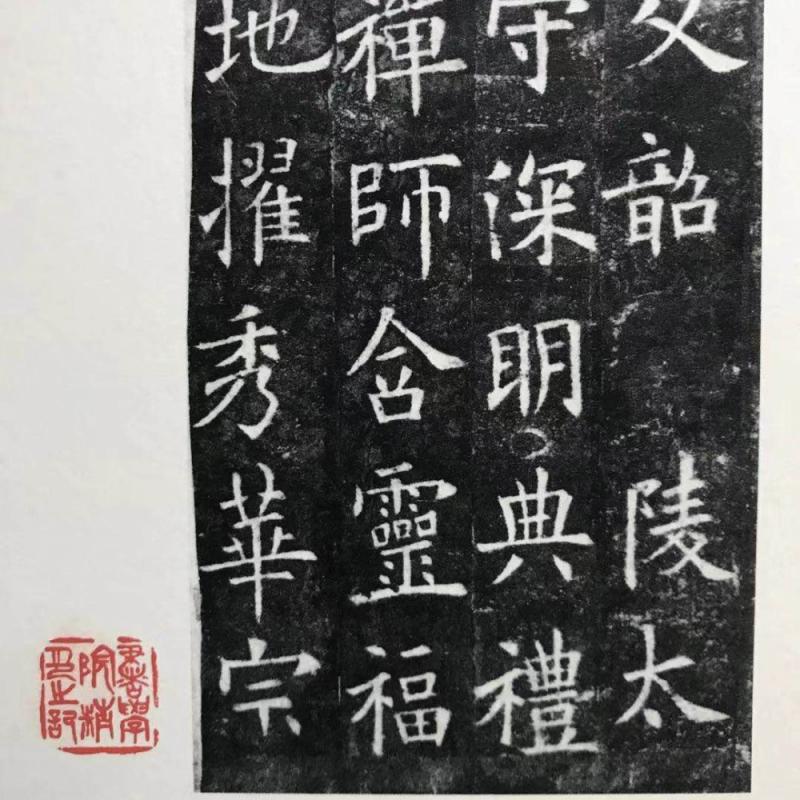 父韶 陵太
守深明典禮
禪師含靈福
地擢秀華宗